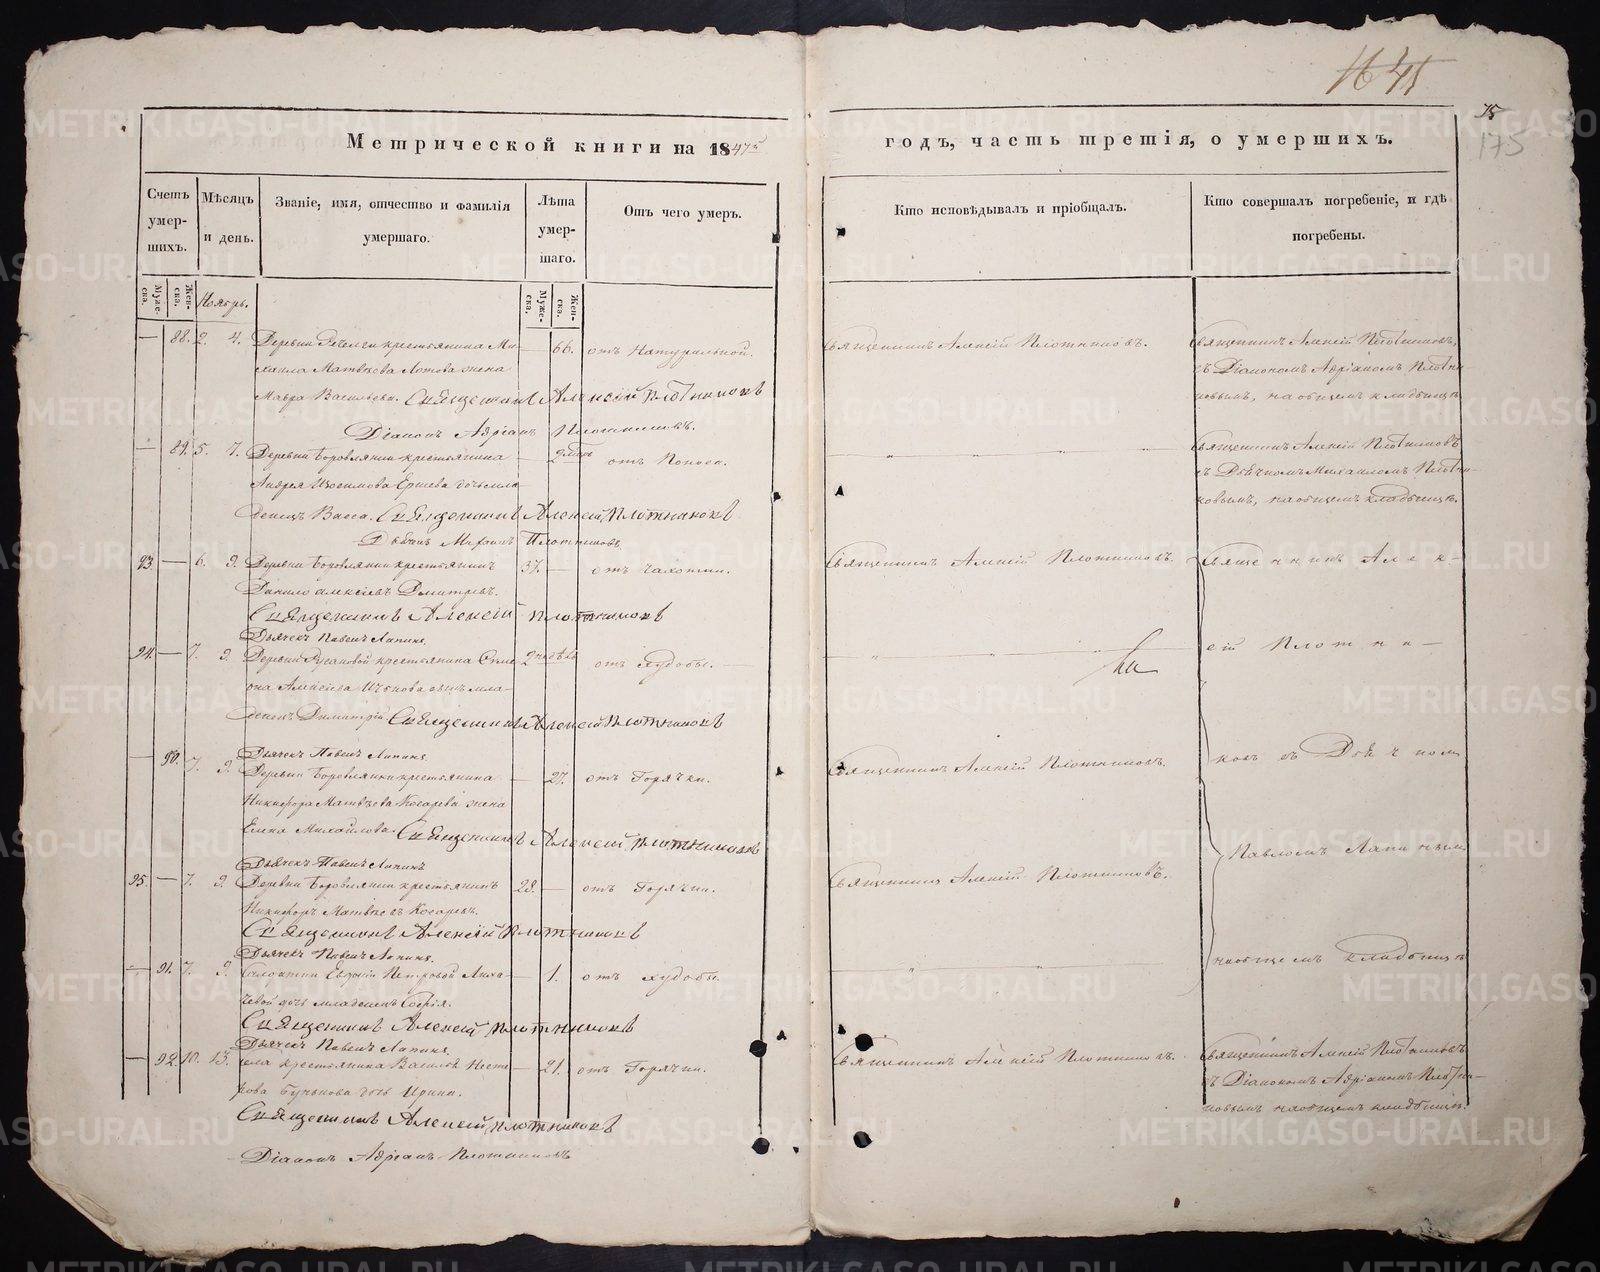 16 45
75
175
Метрической книги на 1845
годъ, часть третія, о умершихъ.
Счетъ умер-шихъ.
Мѣсяцъ и день.
Званіе, имя, отчество и фамилія умершаго.
Лѣта умер-шаго.
Отъ чего умеръ.
Кто исповѣдывалъ и пріобщалъ.
Кто совершалъ погребеніе, и гдѣ погребены.
Муже-ска.
Жен-ска.
Ноябрь.
Муже-ска.
Жен-ска.
— 88. 2. 4. Деревни крестьянина Ми- — 66. отъ Натуральной. Священникъ Алексій Плотниковъ. Священникъ Алексій Плотниковъ,
хаила Матвѣева Лотова жена
съ Діакономъ Адріаномъ Плотни-
Мавра Васильева. Священникъ Алексій Плотниковъ
ковымъ, на общемъ кладбищѣ
Діаконъ Адріанъ Плотниковъ.
— 89. 5. 7. Деревни Боровлянки крестьянина — 2 отъ Поноса. Священникъ Алексій Плотниковъ
Андрея Изосимова Ершева дочь мла-
съ Дьячкомъ Михаиломъ Плотни-
денецъ Васса. Священникъ Алексій Плотниковъ
ковымъ, на общемъ кладбищѣ.
Дьячекъ Михаилъ Плотниковъ
93. — 6. 9. Деревни Боровлянки крестьянинъ 37. — отъ чахотки. Священникъ Алексій Плотниковъ. Священникъ Алек-
Данило Алексіевъ Дмитріевъ.
Священникъ Алексій Плотниковъ
Дьячекъ Павелъ Лапинъ
94. — 7. 9. Деревни крестьянина Симе- 2 недѣль отъ худобы. сій Плотни-
она Алексіева сынъ мла-
денецъ Димитрій. Священникъ Алексій Плотниковъ
Дьячекъ Павелъ Лапинъ
— 90. 7. 9. Деревни Боровлянки крестьянина — 27. отъ Горячки. Священникъ Алексій Плотниковъ. ковъ съ Дьячкомъ
Никифора Матвѣева Косарева жена
Елена Михайлова. Священникъ Алексій Плотниковъ
Павломъ Лапинымъ
Дьячекъ Павелъ Лапинъ
95. — 7. 9. Деревни Боровлянки крестьянинъ 28. — отъ Горячки. Священникъ Алексій Плотниковъ.
Никифоръ Матвѣевъ Косаревъ.
Священникъ Алексій Плотниковъ
Дьячекъ Павелъ Лапинъ.
— 91. 7. 9. Солдатки Евдокіи Петровой Лиха- — 1. отъ худобы. на общемъ кладбищѣ
чевой дочь младенецъ Софія.
Священникъ Алексій Плотниковъ
Дьячекъ Павелъ Лапинъ
— 92. 10. 13. села крестьянина Василія Несте- — 21. отъ Горячки. Священникъ Алексій Плотниковъ. Священникъ Алексій Плотниковъ
рова дочь Ирина.
съ Діакономъ Адріаномъ Плотни-
Священникъ Алексій Плотниковъ
ковымъ на общемъ кладбищѣ.
Діаконъ Адріанъ Плотниковъ